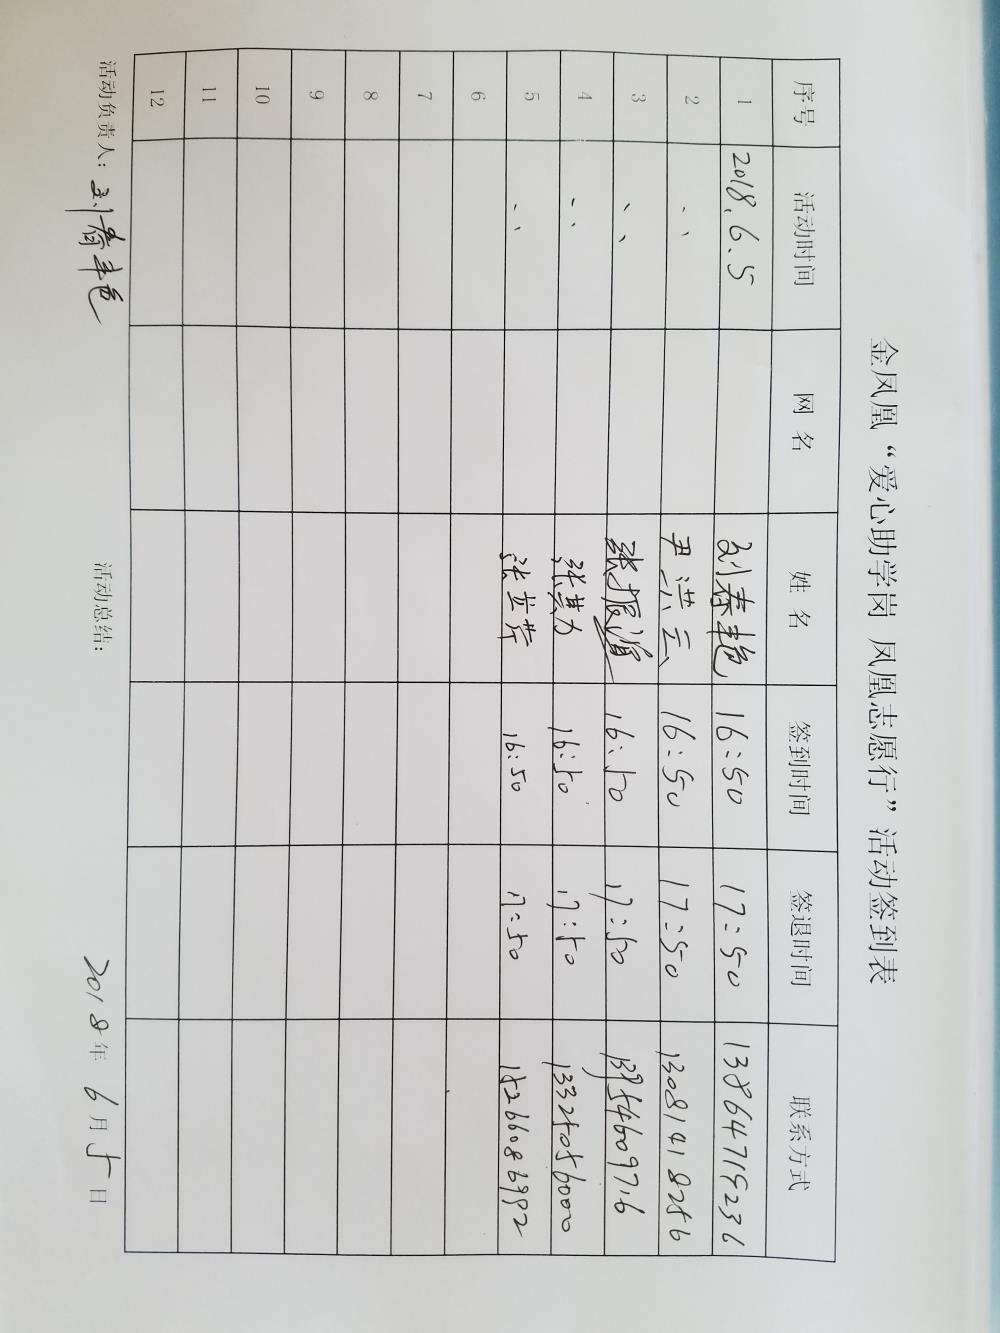 金凤凰“爱心助学岗 凤凰志愿行”活动签到表
序号 活动时间 网 名 姓 名 签到时间 签退时间 联系方式
1 2018.6.5 刘春艳 16:50 17:50 13864719236
2 、、 尹洪云 16:50 17:50 13081418256
3 、、 张振 16:50 17:50
4 、、 张其力 16:50 17:50 13325056000
5 、、 张 16:50 17:50 18266086992
6
7
8
9
10
11
12
活动负责人: 刘春艳 活动总结: 2018年6月5日